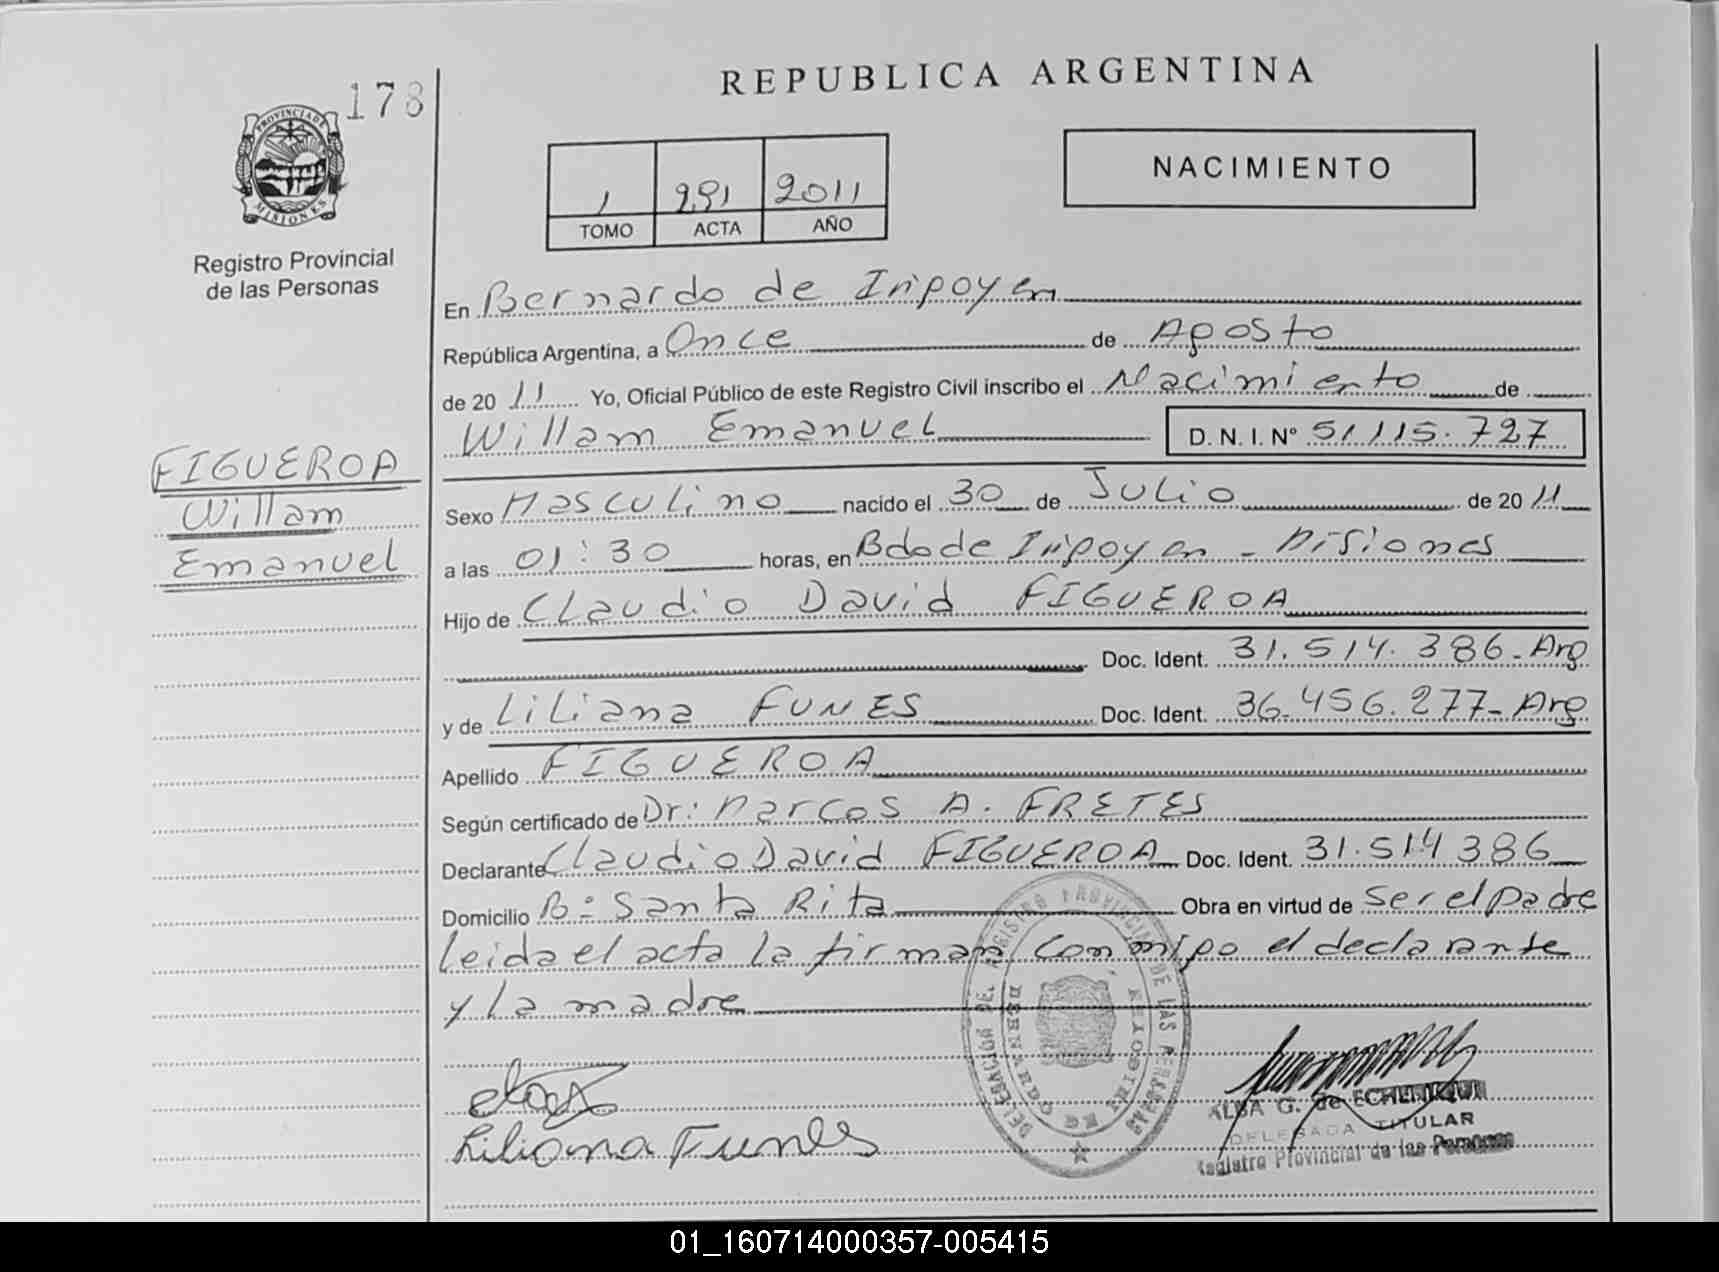 REPUBLICA ARGENTINA
178
PROVINCIA DE MISIONES
Registro Provincial
de las Personas
1 291 2011
TOMO ACTA AÑO
NACIMIENTO
En Bernardo de Irigoyen
República Argentina, a Once de Agosto
de 2011 Yo, Oficial Público de este Registro Civil inscribo el Nacimiento de
Willam Emanuel D. N. I. Nº 51.115.727
FIGUEROA
Willam
Emanuel
Sexo Masculino nacido el 30 de Julio de 2011
a las 01:30 horas, en Bdo de Irigoyen - Misiones
Hijo de Claudio David FIGUEROA
Doc. Ident. 31.514.386-Arg
y de Liliana FUNES Doc. Ident. 36.456.277-Arg
Apellido FIGUEROA
Según certificado de Dr: Marcos A. FRETES
Declarante Claudio David FIGUEROA Doc. Ident. 31.514386
Domicilio Bº Santa Rita Obra en virtud de Ser el Padre
Leida el acta la firman conmigo el declarante
y la madre
DELEGACIÓN DEL REGISTRO PROVINCIAL DE LAS PERSONAS
BERNARDO DE IRIGOYEN
Liliana Funes
ALBA G. de ECHENIQUE
DELEGADA TITULAR
Registro Provincial de las Personas
01_160714000357-005415